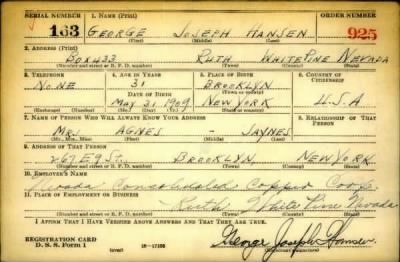 SERIAL NUMBER 1. NAME (Print) ORDER NUMBER
163 GEORGE JOSEPH HANSEN 925
(First) (Middle) (Last)
2. ADDRESS (Print)
BOX 433 RUTH WHITE PINE NEVADA
(Number and street or R. F. D. number) (Town) (County) (State)
3. TELEPHONE 4. AGE IN YEARS 5. PLACE OF BIRTH 6. COUNTRY OF CITIZENSHIP
NONE 31 BROOKLYN
DATE OF BIRTH (Town or county)
MAY 31 1909 NEW YORK U.S.A
(Mo.) (Day) (Yr.) (State or country)
7. NAME OF PERSON WHO WILL ALWAYS KNOW YOUR ADDRESS 8. RELATIONSHIP OF THAT PERSON
MRS AGNES - JAYNES -
(Mr., Mrs., Miss) (First) (Middle) (Last)
9. ADDRESS OF THAT PERSON
267 E 9 ST. BROOKLYN, NEW YORK
(Number and street or R. F. D. number) (Town) (County) (State)
10. EMPLOYER'S NAME
Nevada Consolidated Copper Corp.
11. PLACE OF EMPLOYMENT OR BUSINESS
Ruth White Pine Nevada
(Number and street or R. F. D. number) (Town) (County) (State)
I AFFIRM THAT I HAVE VERIFIED ABOVE ANSWERS AND THAT THEY ARE TRUE.
REGISTRATION CARD
D. S. S. Form 1 (over) 16-17105 George Joseph Hansen
(Registrant's signature)